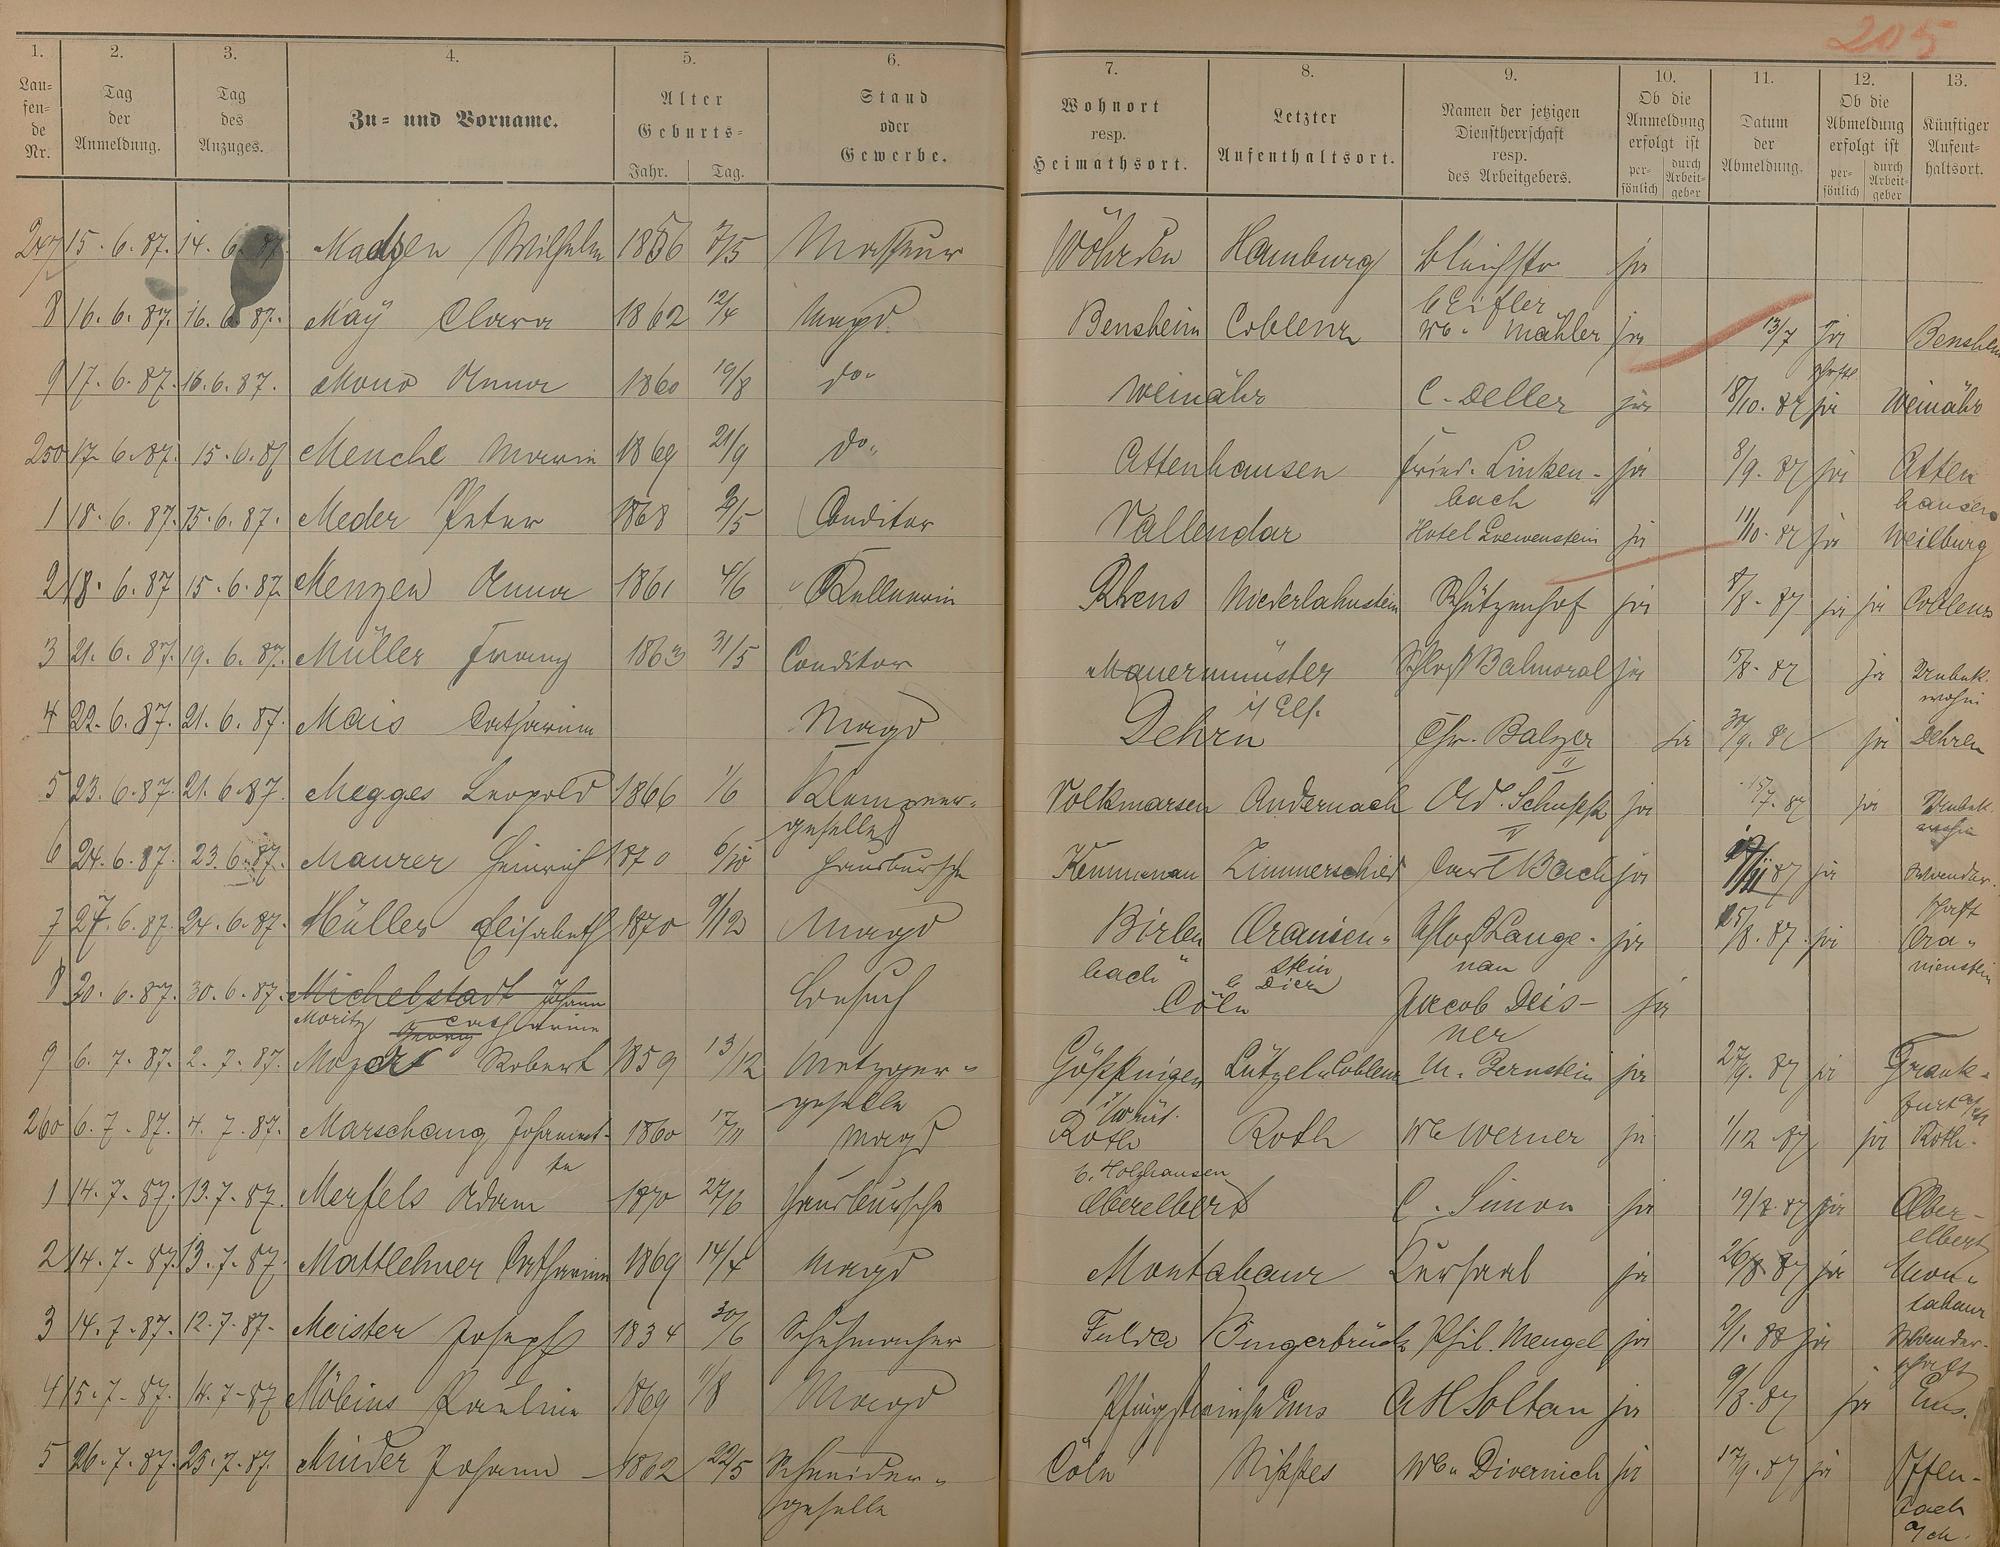 205
1. 2. 3. 4. 5. 6. 7. 8. 9. 10. 11. 12. 13.
Lau-
fen-
de
Nr.
Tag
der
Anmeldung.
Tag
des
Anzuges.
Zu- und Vorname.
Alter
Geburts-
Jahr. Tag.
Stand
oder
Gewerbe.
Wohnort
resp.
Heimathsort.
Letzter
Aufenthaltsort.
Namen der jetzigen
Dienstherrschaft
resp.
des Arbeitgebers.
Ob die
Anmeldung
erfolgt ist
per-
sönlich
durch
Arbeit-
geber
Datum
der
Abmeldung.
Ob die
Abmeldung
erfolgt ist
per-
sönlich
durch
Arbeit-
geber
Künftiger
Aufent-
haltsort.
247 15. 6. 87. 14. 6. 87. Madsen Wilhelm 1856 7/5 Masseur Wöhrden Hamburg Bleichstr ja
8 16. 6. 87. 16. 6. 87. Maÿ Clara 1862 12/4 Magd Bensheim Coblenz Wb. Mähler ja 13/7 ja Bensheim
9 17. 6. 87. 16. 6. 87. Mono Anna 1860 19/8 do. Weinähr C. Deller ja 18/10. 87 ja Weinähr
250 17. 6. 87. 15. 6. 87 Menche Maria 1869 21/9 do. Attenhausen Fried. Linken- ja 8/9. 87 ja Atten
bach hausen
1 18. 6. 87. 15. 6. 87. Meder Peter 1868 2/5 Conditor Vallendar Hotel Loewenstein ja 11/10. 87 ja Weilburg
2 18. 6. 87 15. 6. 87. Menzen Anna 1861 4/6 Kellnerin Rhens Niederlahnstein Schützenhof ja 8/8. 87 ja ja Coblenz
3 21. 6. 87. 19. 6. 87. Müller Franz 1863 31/5 Conditor Mauermünster Schloß Balmoral ja 15/8. 87 ja Unbek.
i/ Els. wohin
4 22. 6. 87. 21. 6. 87. Mais Catharina Magd Dehrn Chr. Balzer ja 30/9. 87 ja Dehren
5 23. 6. 87. 21. 6. 87. Megges Leopold 1866 1/6 Klempner- Volkmarsen Andernach Ad. Schupp ja 15/7. 87 ja Unbek.
geselle II wohin
6 24. 6. 87. 23. 6. 87. Maurer Heinrich 1870 6/10 Hausbursche Kemmenau Zimmerschied Carl Bach ja 87 ja Wander-
schaft
7 27. 6. 87. 24. 6. 87. Müller Elisabeth 1870 9/12 Magd Birlen Oranien- Schloß Lange- ja 25/8. 87. ja Ora-
bach stein nau nienstein
b Diez
8 30. 6. 87. 30. 6. 87. Michelstadt Johann Besuch Cöln Jacob Deis- ja
Moritz Georg Catharina ner
9 6. 7. 87. 2. 7. 87. Mozart Robert 1859 13/12 Metzger- Göppingen Lützel Coblenz M. Bernstein ja 27/9. 87 ja Frank-
geselle i/Würt. furt a/M
260 6. 7. 87. 4. 7. 87. Marschang Johannet- 1860 17/11 Magd Roth Roth Wb Werner ja 1/12. 87 ja Roth.
te b. Holzhausen
1 14. 7. 87. 13. 7. 87. Merfels Adam 1870 27/6 Hausbursche Oberelbert C. Simon ja 19/8. 87 ja Ober-
elbert
2 14. 7. 87. 13. 7. 87. Mattlehner Catharina 1869 14/4 Magd Montabaur Kursaal ja 26/8 87 ja Mon-
tabaur
3 14. 7. 87. 12. 7. 87. Meister Joseph 1834 30/6 Schuhmacher Fulda Bingerbrück Phil. Mengel ja 2/1. 88 ja Wander-
schaft
4 15. 7. 87. 14. 7. 87 Möbius Pauline 1869 1/8 Magd Pfingstwiese Ems A H Soltan ja 9/8. 87 ja Ems.
5 26. 7. 87. 25. 7. 87. Minder Johann 1862 22/5 Schneider- Cöln Nippes Wb. Divernich ja 17/9. 87 ja Offen-
geselle bach